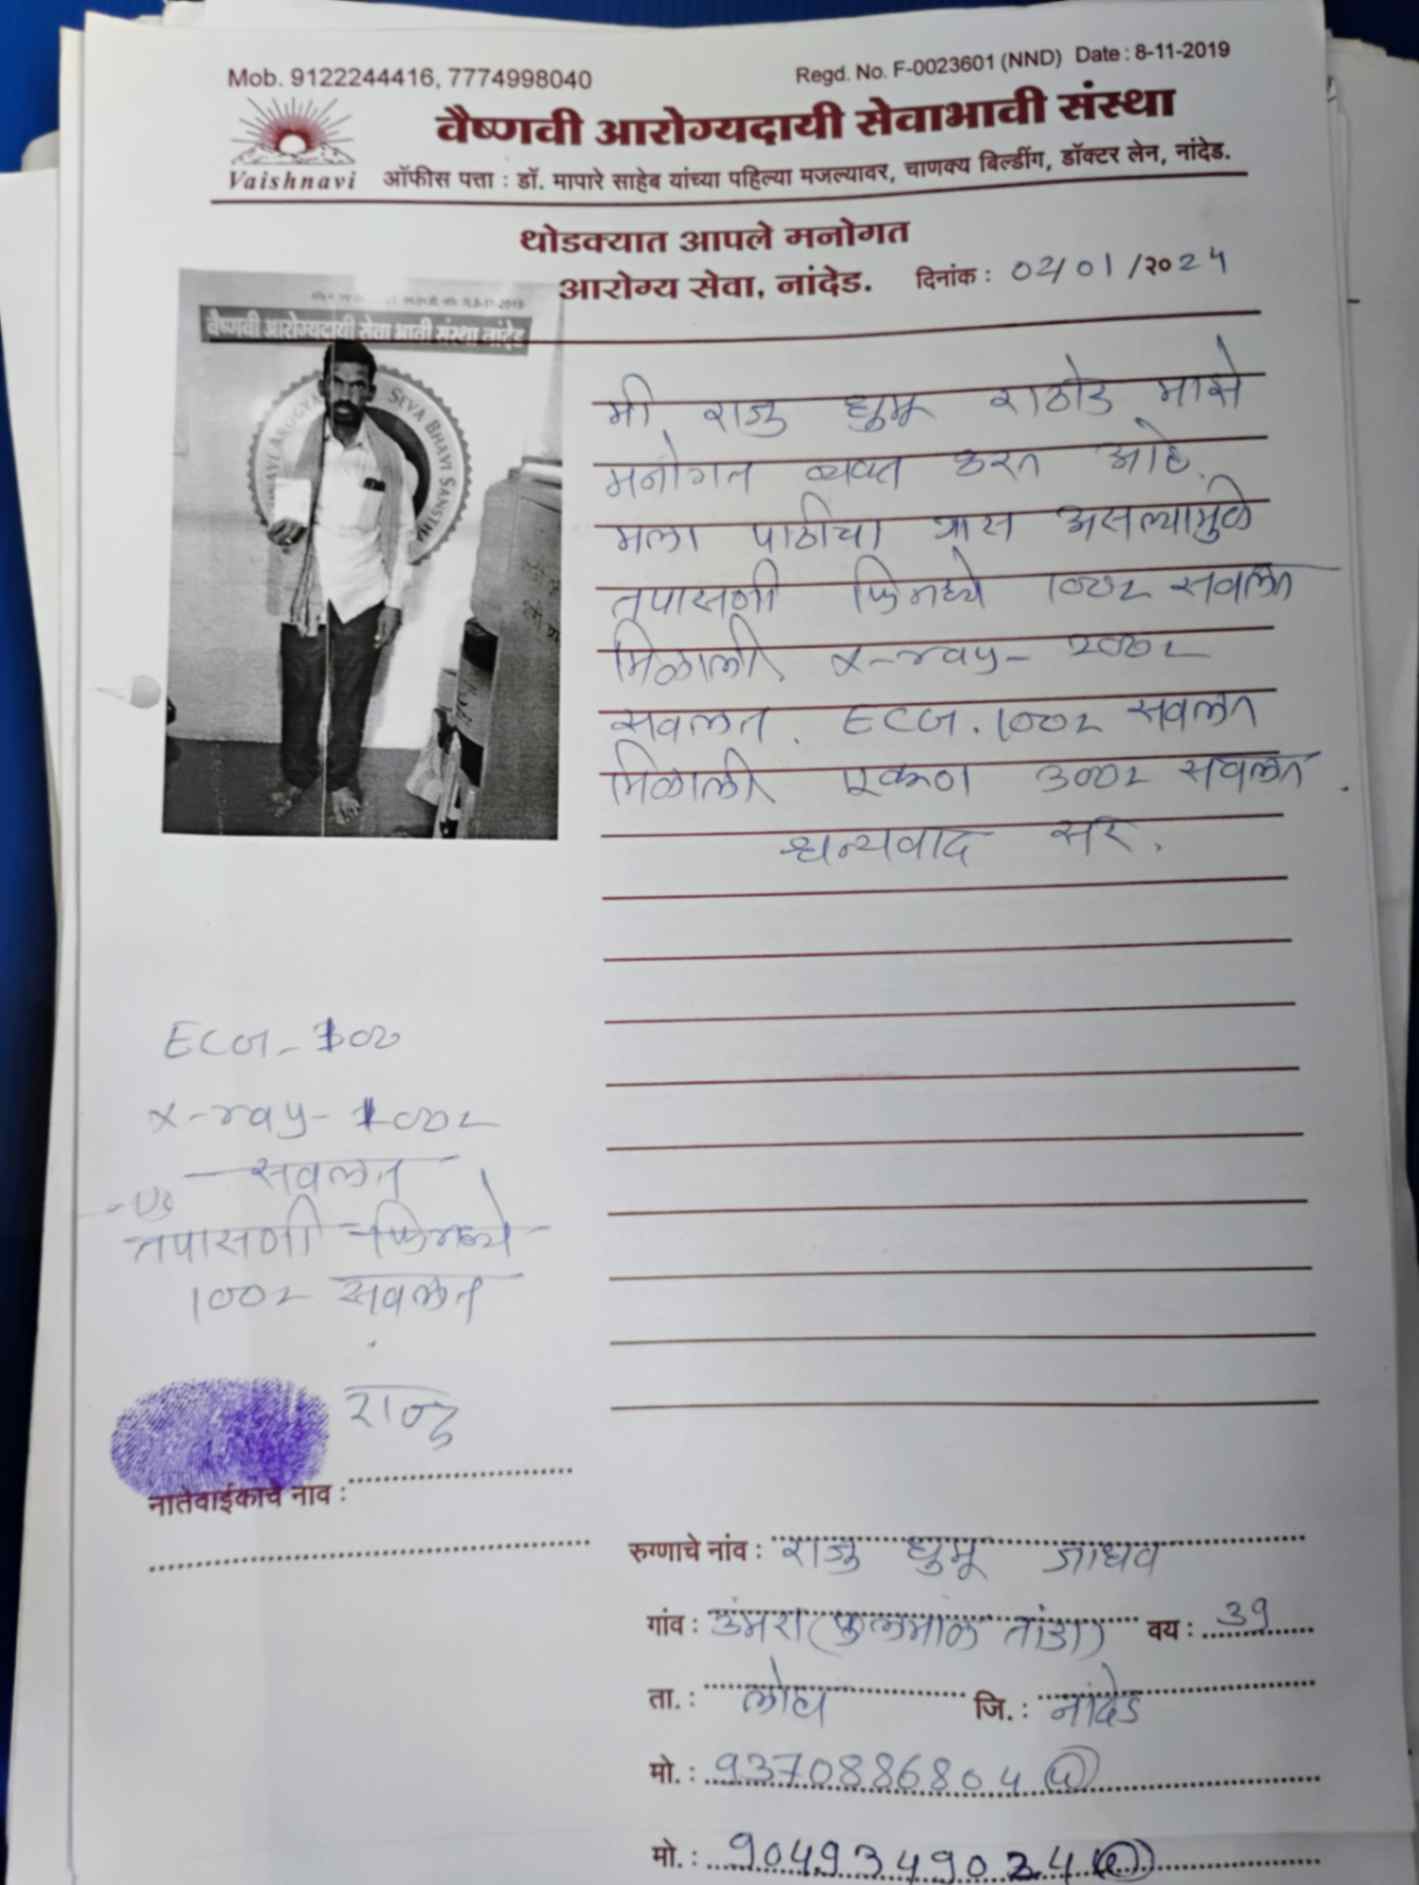 Mob. 9122244416, 7774998040
Regd. No. F-0023601 (NND) Date : 8-11-2019
वैष्णवी आरोग्यदायी सेवाभावी संस्था
Vaishnavi
ऑफीस पत्ता : डॉ. मापारे साहेब यांच्या पहिल्या मजल्यावर, चाणक्य बिल्डींग, डॉक्टर लेन, नांदेड.
थोडक्यात आपले मनोगत
आरोग्य सेवा, नांदेड. दिनांक : 02/01/२०24
वैष्णवी आरोग्यदायी सेवा भावी संस्था नांदेड
SEVA BHAVI SANSTHA
मी राजु धुमू राठोड माझे
मनोगत व्यक्त करत आहे.
मला पाठीचा त्रास असल्यामुळे
तपासणी फिमध्ये 100र सवलत
मिळाली x-ray- 200र
सवलत. ECG. 100र सवलत
मिळाली एकूण 300र सवलत.
धन्यवाद सर.
ECG - 100
x-ray - 100र
सवलत
तपासणी फिमध्ये
100र सवलत
राजु
नातेवाईकाचे नाव :
रुग्णाचे नांव : राजु धुमू जाधव
गांव : उंमरा (फुलमाळ तांडा) वय : 39
ता. : लोहा जि. : नांदेड
मो. : 9370886804
मो. : 9049349024